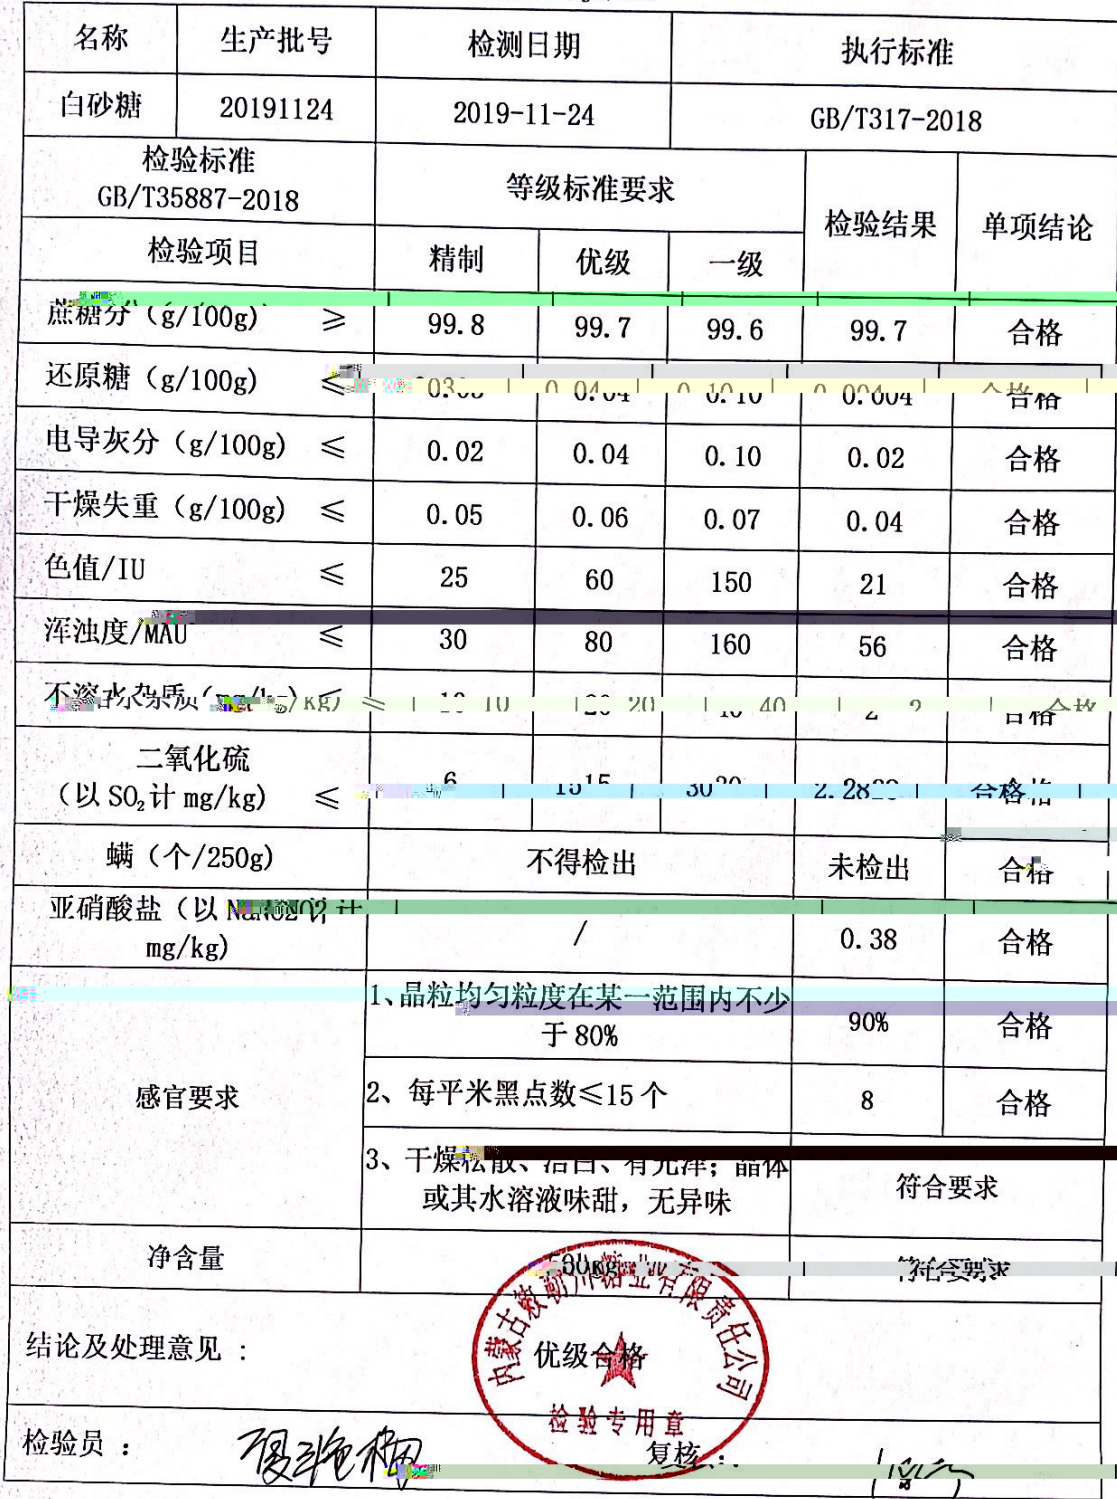 名称 生产批号 检测日期 执行标准
白砂糖 20191124 2019-11-24 GB/T317-2018
检验标准
GB/T35887-2018
等级标准要求 检验结果 单项结论
检验项目 精制 优级 一级
蔗糖分（g/100g） ≥ 99.8 99.7 99.6 99.7 合格
还原糖（g/100g） ≤ 0.04 0.10 0.004 合格
电导灰分（g/100g） ≤ 0.02 0.04 0.10 0.02 合格
干燥失重（g/100g） ≤ 0.05 0.06 0.07 0.04 合格
色值/IU ≤ 25 60 150 21 合格
浑浊度/MAU ≤ 30 80 160 56 合格
不溶水杂质（mg/kg）≤ 10 20 40 2 合格
二氧化硫
（以 SO₂计 mg/kg） ≤ 6 15 30 合格
螨（个/250g） 不得检出 未检出 合格
亚硝酸盐（以 计
mg/kg) / 0.38 合格
感官要求
1、晶粒均匀粒度在某一范围内不少
于 80% 90% 合格
2、每平米黑点数≤15 个 8 合格
3、干燥松散、洁白、有光泽；晶体
或其水溶液味甜，无异味 符合要求
净含量 符合要求
结论及处理意见 ： 优级合格
内蒙古敕勒川糖业有限责任公司
检验专用章
检验员 ： 复核 ：